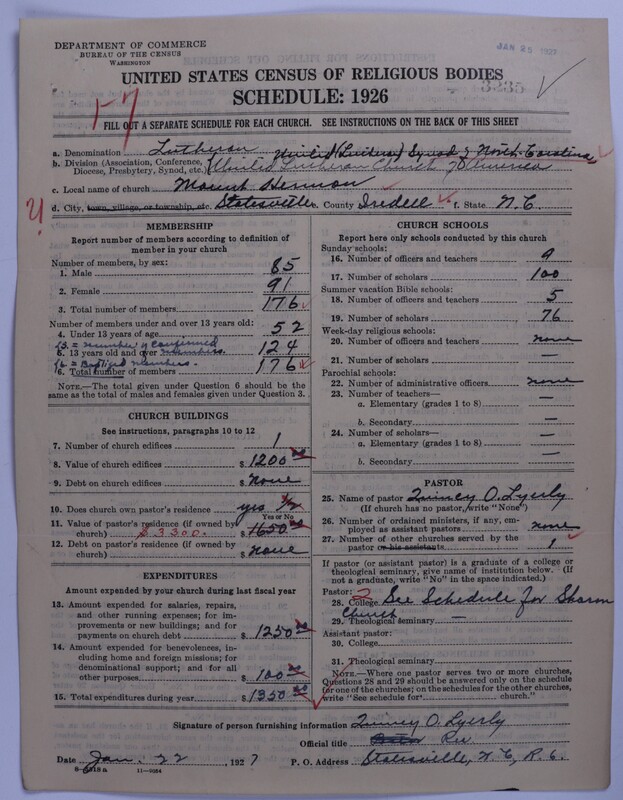 DEPARTMENT OF COMMERCE
BUREAU OF THE CENSUS
WASHINGTON
JAN 25 1927
UNITED STATES CENSUS OF RELIGIOUS BODIES
3235
SCHEDULE: 1926
1-7
FILL OUT A SEPARATE SCHEDULE FOR EACH CHURCH. SEE INSTRUCTIONS ON THE BACK OF THIS SHEET
a. Denomination Lutheran United (Lutheran) Synod of North Carolina
b. Division (Association, Conference, Diocese, Presbytery, Synod, etc.) United Lutheran Church of America
c. Local name of church Mount Hermon
d. City, town, village, or township, etc. Statesville e. County Iredell f. State N. C.
MEMBERSHIP
Report number of members according to definition of member in your church
Number of members, by sex:
1. Male 85
2. Female 91
3. Total number of members 176
Number of members under and over 13 years old:
4. Under 13 years of age 52
(5 = Number of confirmed
5. 13 years old and over members. 124
(6 = Baptized members.
6. Total number of members 176
NOTE.—The total given under Question 6 should be the same as the total of males and females given under Question 3.
CHURCH BUILDINGS
See instructions, paragraphs 10 to 12
7. Number of church edifices 1
8. Value of church edifices $ 1200 00
9. Debt on church edifices $ none
10. Does church own pastor's residence yes 1/2
Yes or No
11. Value of pastor's residence (if owned by church) $3300. $ 1650 00
12. Debt on pastor's residence (if owned by church) $ none
EXPENDITURES
Amount expended by your church during last fiscal year
13. Amount expended for salaries, repairs, and other running expenses; for improvements or new buildings; and for payments on church debt $ 1250 00
14. Amount expended for benevolences, including home and foreign missions; for denominational support; and for all other purposes $ 100 00
15. Total expenditures during year $ 1350 00
CHURCH SCHOOLS
Report here only schools conducted by this church
Sunday schools:
16. Number of officers and teachers 9
17. Number of scholars 100
Summer vacation Bible schools:
18. Number of officers and teachers 5
19. Number of scholars 76
Week-day religious schools:
20. Number of officers and teachers none
21. Number of scholars —
Parochial schools:
22. Number of administrative officers none
23. Number of teachers—
a. Elementary (grades 1 to 8) —
b. Secondary —
24. Number of scholars—
a. Elementary (grades 1 to 8) —
b. Secondary —
PASTOR
25. Name of pastor Quincy O. Lyerly
(If church has no pastor, write "None")
26. Number of ordained ministers, if any, employed as assistant pastors none
27. Number of other churches served by the pastor or his assistants 1
If pastor (or assistant pastor) is a graduate of a college or theological seminary, give name of institution below. (If not a graduate, write "No" in the space indicated.)
Pastor: 2
28. College See Schedule for Sharon Church
29. Theological seminary —
Assistant pastor:
30. College
31. Theological seminary
NOTE.—Where one pastor serves two or more churches, Questions 28 and 29 should be answered only on the schedule for one of the churches; on the schedules for the other churches, write "See schedule for church."
Signature of person furnishing information Quincy O. Lyerly
Official title Rev
Date Jan. 22, 1927 P. O. Address Statesville, N. C., R. 6.
8-6218a 11-9084